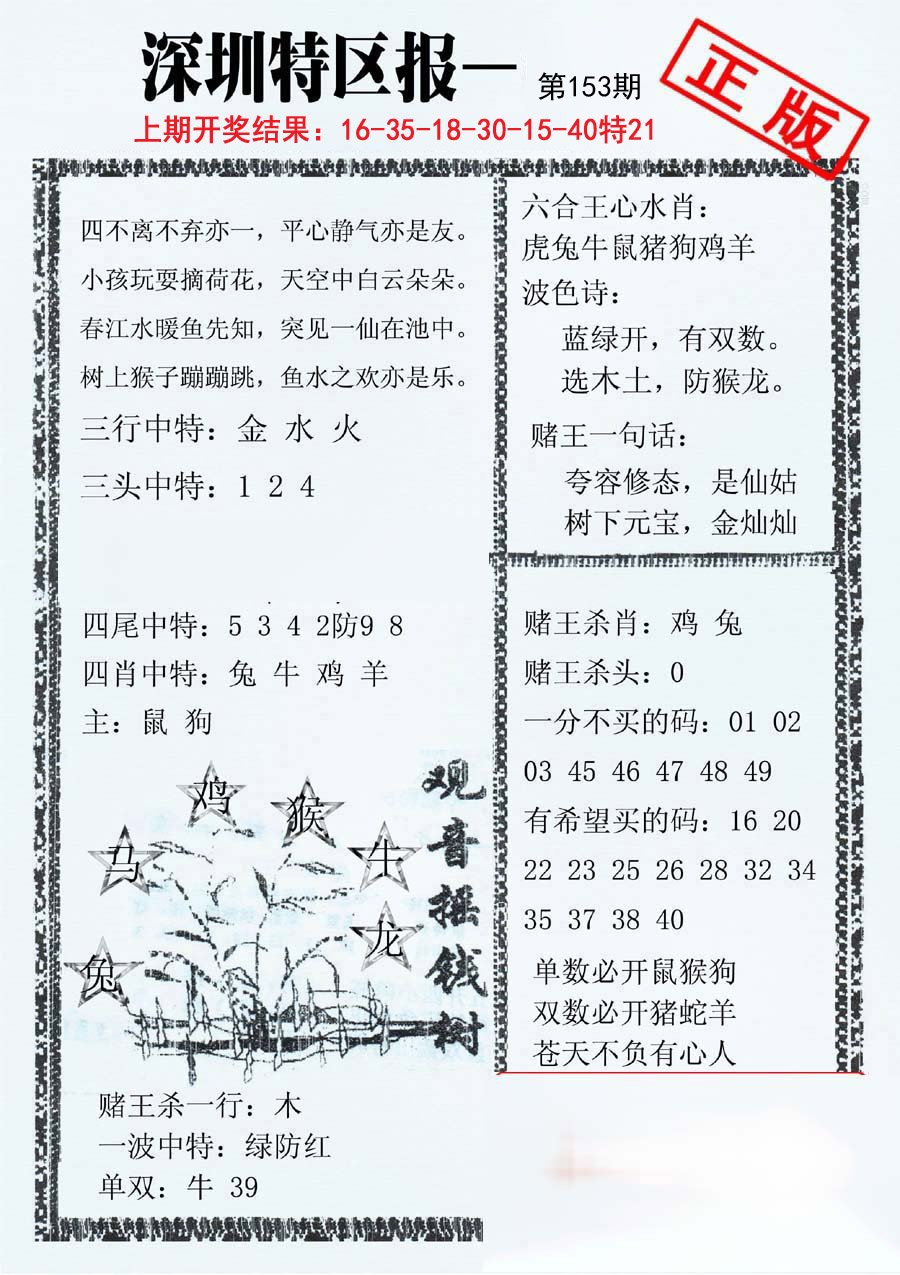 深圳特区报一 第153期
正版
上期开奖结果：16-35-18-30-15-40特21
四不离不弃亦一，平心静气亦是友。
小孩玩耍摘荷花，天空中白云朵朵。
春江水暖鱼先知，突见一仙在池中。
树上猴子蹦蹦跳，鱼水之欢亦是乐。
三行中特：金 水 火
三头中特：1 2 4
四尾中特：5 3 4 2防9 8
四肖中特：兔 牛 鸡 羊
主：鼠 狗
鸡
猴
马
牛
龙
兔
观音摇钱树
赌王杀一行：木
一波中特：绿防红
单双：牛 39
六合王心水肖：
虎兔牛鼠猪狗鸡羊
波色诗：
蓝绿开，有双数。
选木土，防猴龙。
赌王一句话：
夸容修态，是仙姑
树下元宝，金灿灿
赌王杀肖：鸡 兔
赌王杀头：0
一分不买的码：01 02
03 45 46 47 48 49
有希望买的码：16 20
22 23 25 26 28 32 34
35 37 38 40
单数必开鼠猴狗
双数必开猪蛇羊
苍天不负有心人